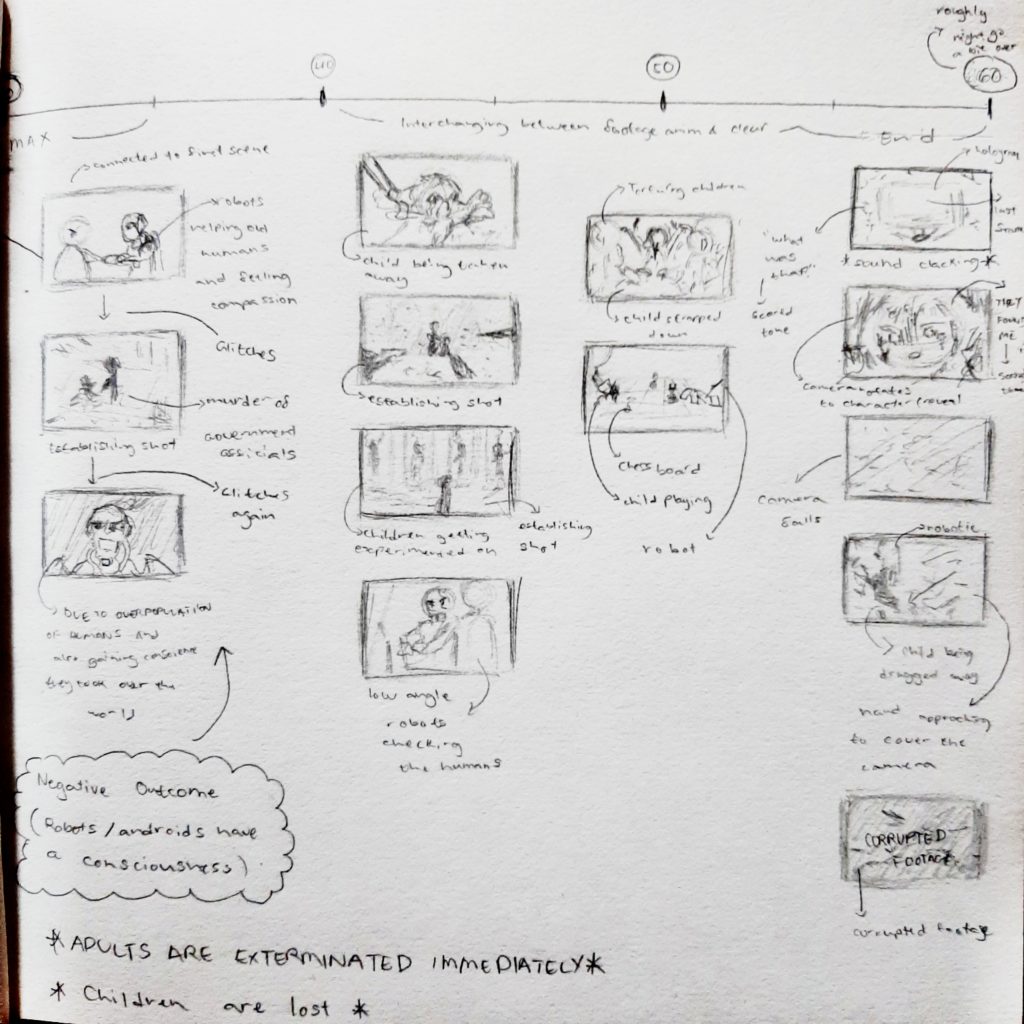 roughly
might go
a bit over
40
50
60
MAX
Interchanging between footage anim & clear
End
connected to first scene
robots
helping old
humans
and feeling
compassion
Glitches
murder of
government
officials
establishing shot
Glitches
again
DUE TO OVERPOPULATION
OF HUMANS AND
also gaining conscience
they took over the
world
Negative Outcome
(Robots/androids have
a consciousness)
*ADULTS ARE EXTERMINATED IMMEDIATELY*
* Children are lost *
child being taken
away
establishing shot
children getting
experimented on
establishing
shot
low angle
robots
checking
the humans
children
child strapped
down
chess board
child playing
robot
hologram
last
"what
was
that"
scared
tone
*sound clacking*
THEY
FOUND
ME
camera rotates
to character (reveal
camera
falls
robotic
child being
dragged away
hand approching
to cover the
camera
CORRUPTED
FOOTAGE
corrupted footage